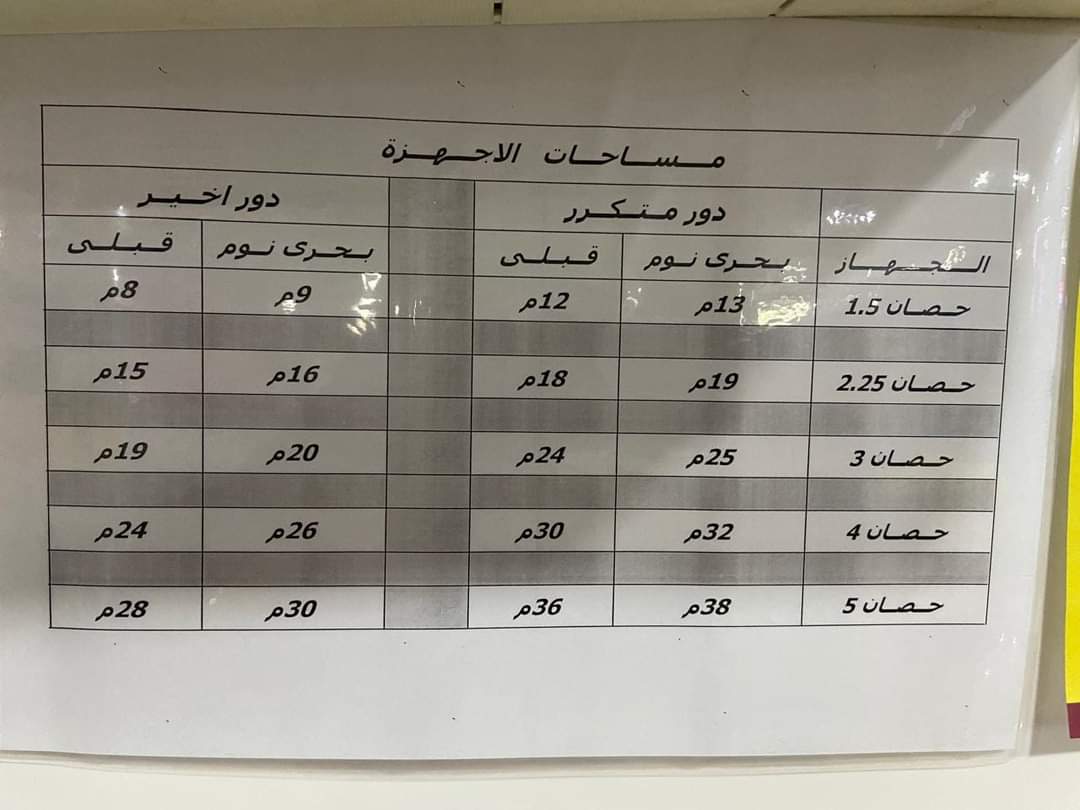 مساحات الاجهزة
دور متكرر دور اخير
الجهاز بحرى نوم قبلى بحرى نوم قبلى
1.5 حصان 13م 12م 9م 8م
2.25 حصان 19م 18م 16م 15م
3 حصان 25م 24م 20م 19م
4 حصان 32م 30م 26م 24م
5 حصان 38م 36م 30م 28م